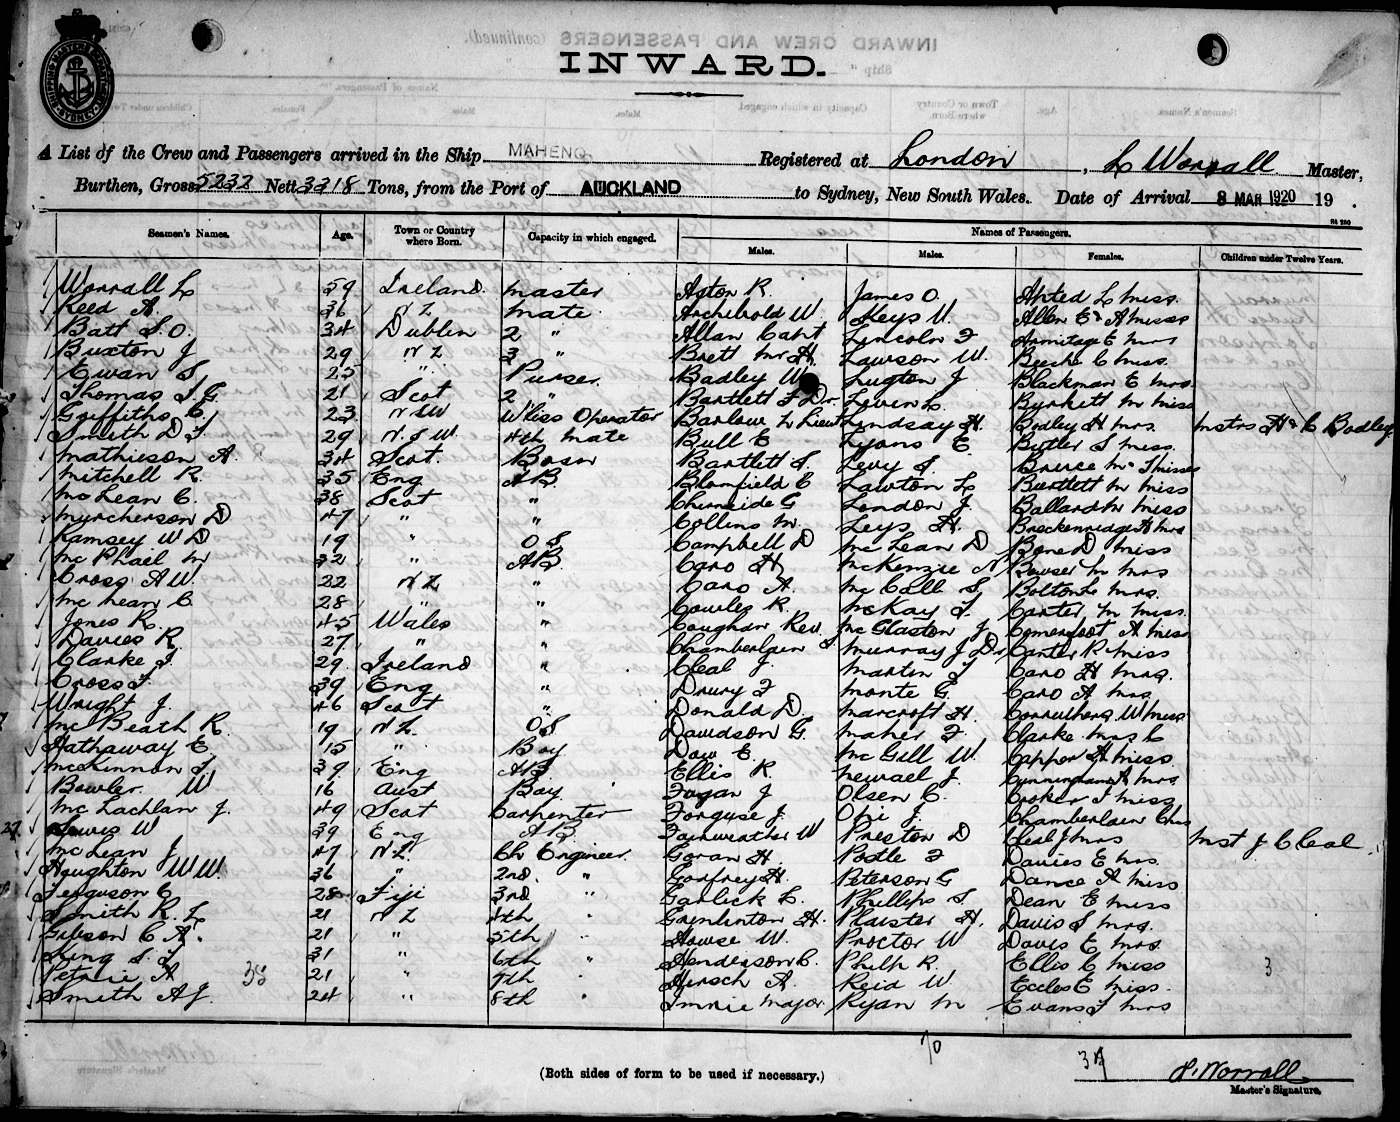 INWARD.
SHIPPING MASTERS DEPARTMENT SYDNEY
A List of the Crew and Passengers arrived in the Ship MAHENO Registered at London, L Worrall Master,
Burthen, Gross 5232 Nett 3318 Tons, from the Port of AUCKLAND to Sydney, New South Wales. Date of Arrival 8 MAR 1920 19 .
St 250
Seamen's Names. Age. Town or Country where Born. Capacity in which engaged. Names of Passengers.
Males. Males. Females. Children under Twelve Years.
Worrall L 59 Ireland master Aston R. James O. Ahted L miss.
Reed A. 36 N Z mate Archibold W. Keys W. Allen E & A misses
Batt S. O. 34 Dublin 2 " Allan Capt Lincoln F Armitage E mrs
Buxton J 29 N Z 3 " Brett mr H. Lawson W. Beeche C miss.
Ewan S. 25 " Purser. Badley W Lugton J Blackman E mrs.
Thomas S. G 21 Scot 2 " Bartlett F Dr. Levin L. Burkett m miss
Griffiths C. 23 NSW W'less Operator Barlow h Lieut Lindsay H. Bodley H mrs. Mstrs H & C Bodley
Smith D J 29 N. S W. 4th mate Bull E Lyons E. Butler S miss.
Mathieson A. 34 Scot. Bosn Bartlett S. Levy S. Breece M & J misses
Mitchell R. 35 Eng AB. Blomfield C Lawton L Burtlett m miss
Mc Lean C. 38 Scot " Chernside G London J. Ballard m miss
Murcherson D 47 " " Collins m. Leys H. Breckenridge A mrs
Ramsey W D 19 " O S Campbell D Mc Lean D Bone D miss
Mc Phail m 32 " AB. Caro H McKenzie N Bowser m mrs
Cross A W. 22 N Z " Caro A. Mc Call S. Bolton L mrs.
Mc Lean C. 28 " " Cowles R. McKay S. Carter m miss.
Jones R. 45 Wales " Coughan Rev. Mc Glaston J. Comerfoot A miss
Davies R. 27 " " Chamberlain S. Murray J Dr Canter R miss
Clarke J. 29 Ireland " Cleal J. Martin J Caro H mrs.
Cross J. 39 Eng " Drury F Monte G. Caro A mrs.
Wright J. 46 Scot " Donald D. Marcroft H. Corruthers W miss
Mc Beath R. 19 N Z. O S Davidson G. Maher F. Clarke mrs C
Hathaway E. 15 " Boy Dow E. Mc Gill W. Copper H miss.
McKinnon J 39 Eng AB. Ellis R. Newsael J. Cunningham A mrs
Bowler W 16 Aust Boy. Fagan J Olsen C. Croker J miss
Mc Lachlan J. 49 Scot Carpenter Forguse J. Ori J. Chamberlain C mrs
27 Lewis W 39 Eng A B. Fairweather W Preston D Cleal J mrs Mst J Cleal
Mc Lean J 47 N Z. Ch Engineer. Goran H. Postle F Davies E mrs.
Houghton W W. 36 " 2nd. " Godfrey H. Peterson G Dance A miss
Ferguson C 28 Fiji 3rd " Garlick L. Phillips S. Dean E miss
Smith R. L 21 N Z 4th " Grenlinton H. Plaister H. Davis S mrs.
Gibson C A. 21 " 5th " Howse W. Proctor W Davis E mrs.
King S. J. 31 " 6th " Henderson C. Philp R. Ellis C miss 3
Petrie A 35 21 " 7th " Hirsch A. Reid W. Eccles E miss.
Smith A J. 24 " 8th " Imrie Major. Ryan m Evans J mrs
70 34
(Both sides of form to be used if necessary.)
L. Worrall
Master's Signature.